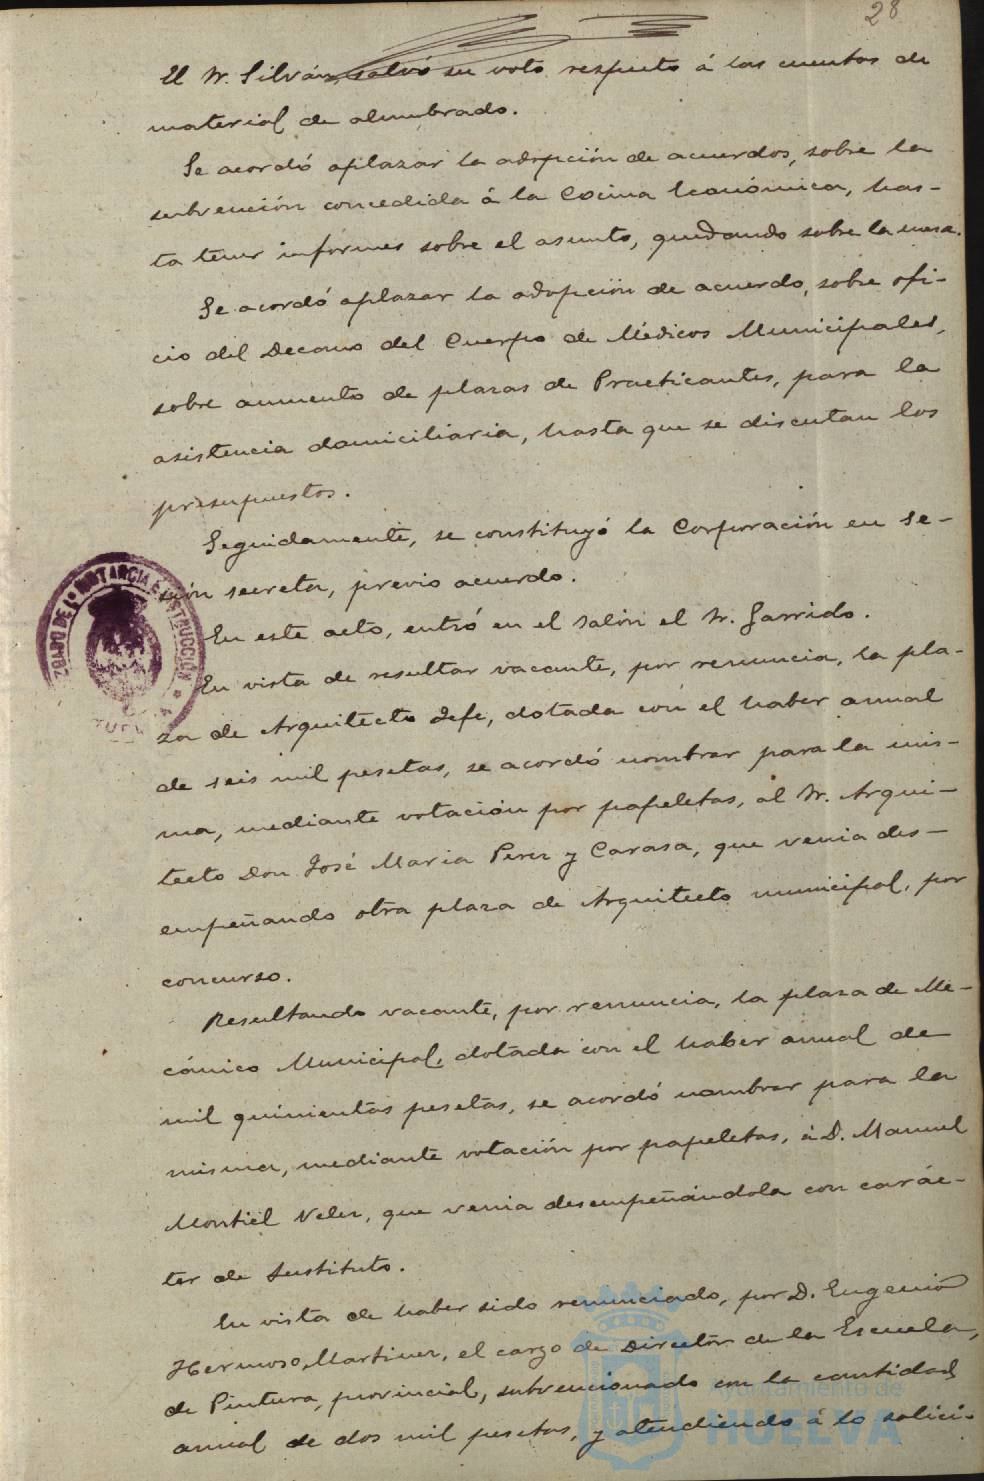 28
El Sr. Silván, salvó su voto respecto á las cuentas de
material de alumbrado.
Se acordó aplazar la adopción de acuerdos, sobre la
subvención concedida á la Cocina Económica, has-
ta tener informes sobre el asunto, quedando sobre la mesa.
Se acordó aplazar la adopción de acuerdo, sobre ofi-
cio del Decano del Cuerpo de Médicos Municipales,
sobre aumento de plazas de Practicantes, para la
asistencia domiciliaria, hasta que se discutan los
presupuestos.
Seguidamente, se constituyó la Corporación en se-
sión secreta, previo acuerdo.
En este acto, entró en el salón el Sr. Garrido.
En vista de resultar vacante, por renuncia, la pla-
za de Arquitecto Jefe, dotada con el haber anual
de seis mil pesetas, se acordó nombrar para la mis-
ma, mediante votación por papeletas, al Sr. Arqui-
tecto Don José Maria Perez y Carasa, que venia des-
empeñando otra plaza de Arquitecto municipal, por
concurso.
Resultando vacante, por renuncia, la plaza de Me-
cánico Municipal, dotada con el haber anual de
mil quinientas pesetas, se acordó nombrar para la
misma, mediante votación por papeletas, á D. Manuel
Montiel Velez, que venia desempeñándola con carác-
ter de Sustituto.
En vista de haber sido renunciado, por D. Eugenio
Hermoso Martinez, el cargo de Director de la Escuela,
de Pintura, provincial, subvencionado con la cantidad
anual de dos mil pesetas, y atendiendo á lo solici-
JUZGADO DE 1ª INSTANCIA É INSTRUCCIÓN
Ayuntamiento de
HUELVA